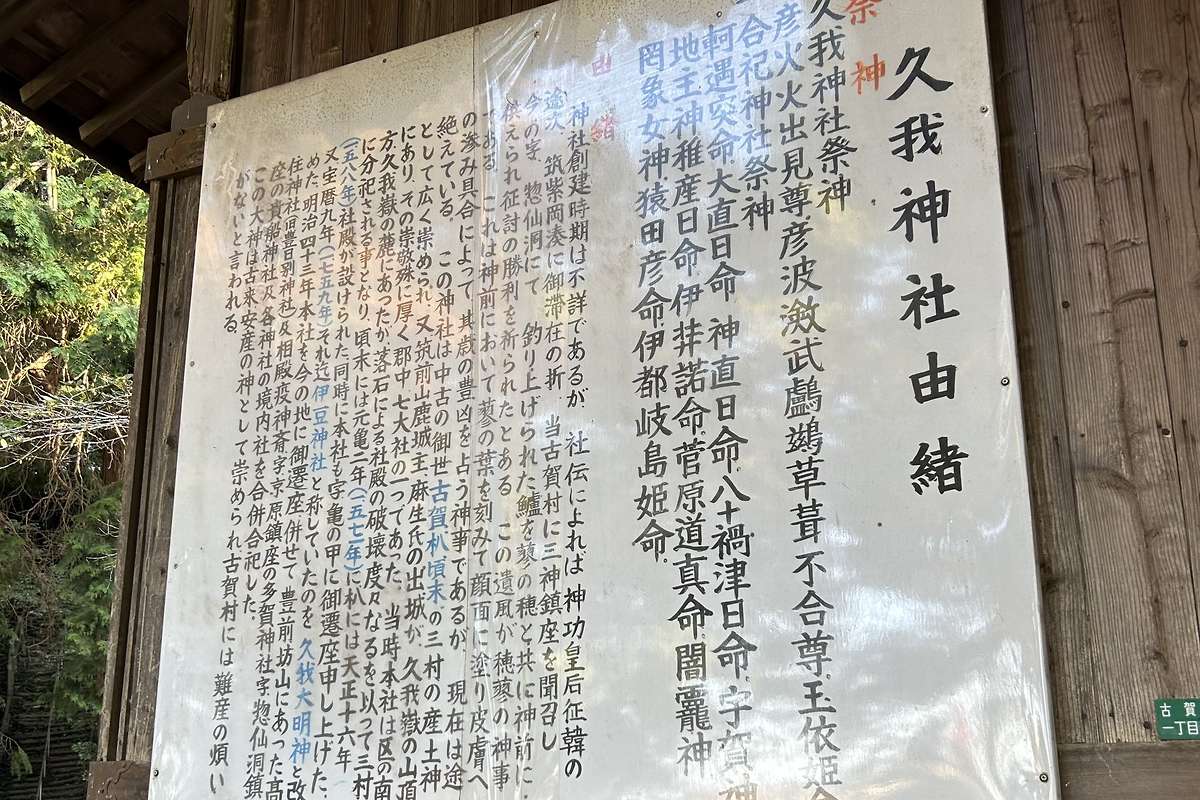 久我神社由緒
祭神
久我神社祭神
彦火火出見尊彦波瀲武鸕鷀草葺不合尊玉依姫命
合祀神社祭神
軻遇突命大直日命神直日命八十禍津日命宇賀神
地主神稚産日命伊弉諾命菅原道真命闇龗神
罔象女神猿田彦命伊都岐島姫命
由緒
神社創建時期は不詳であるが、社伝によれば神功皇后征韓の
途次、筑紫岡湊に御滞在の折、当古賀村に三神鎮座を聞召し
今の字、惣仙洞にて、釣り上げられた鱸を蓼の穂と共に神前に
供えられ征討の勝利を祈られたとある。この遺風が穂蓼の神事
である。これは神前において蓼の葉を刻みて顔面に塗り皮膚へ
の滲み具合によって、其歳の豊凶を占う神事であるが、現在は途
絶えている。この神社は中古の御世古賀朳頃末の三村の産土神
として広く崇められ、又筑前山鹿城主麻生氏の出城が、久我嶽の山頂
にあり、その崇敬殊に厚く郡中七大社の一つであった。当時本社は区の南
方久我嶽の麓にあったが落石による社殿の破壊度々なるを以って三村
に分祀される事となり、頃末には元亀二年(一五七一年)に朳には天正十六年
(一五八八年)社殿が設けられた同時に本社も字亀の甲に御遷座申し上げた。
又宝暦九年(一七五九年)それ迄伊豆神社と称していたのを、久我大明神と改
めた。明治四十三年本社を今の地に御遷座併せて豊前坊山にあった高
住神社(旧豊日別神社)及相殿疫神斎字京原鎮座の多賀神社字惣仙洞鎮
座の貴船神社及各神社の境内社を合併合祀した。
この大神は古来安産の神として崇められ古賀村には難産の煩い
がないと言われる。
古賀
一丁目